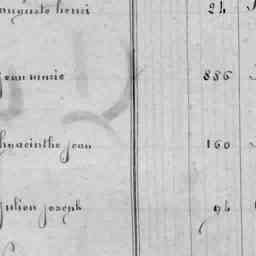 auguste henri 24
jean marie 886
hyacinthe jean 160
julien joseph 94